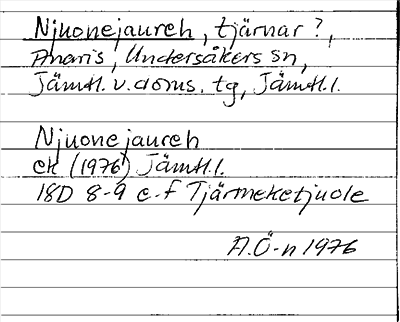 Njuonejaureh, tjärnar?,
Anaris, Undersåkers sn,
Jämtl. v. doms. tg, Jämtl. l.
Njuonejaureh
ek (1976) Jämtl. l.
18D 8-9 e-f Tjärmeketjuole
A.Ö-n 1976